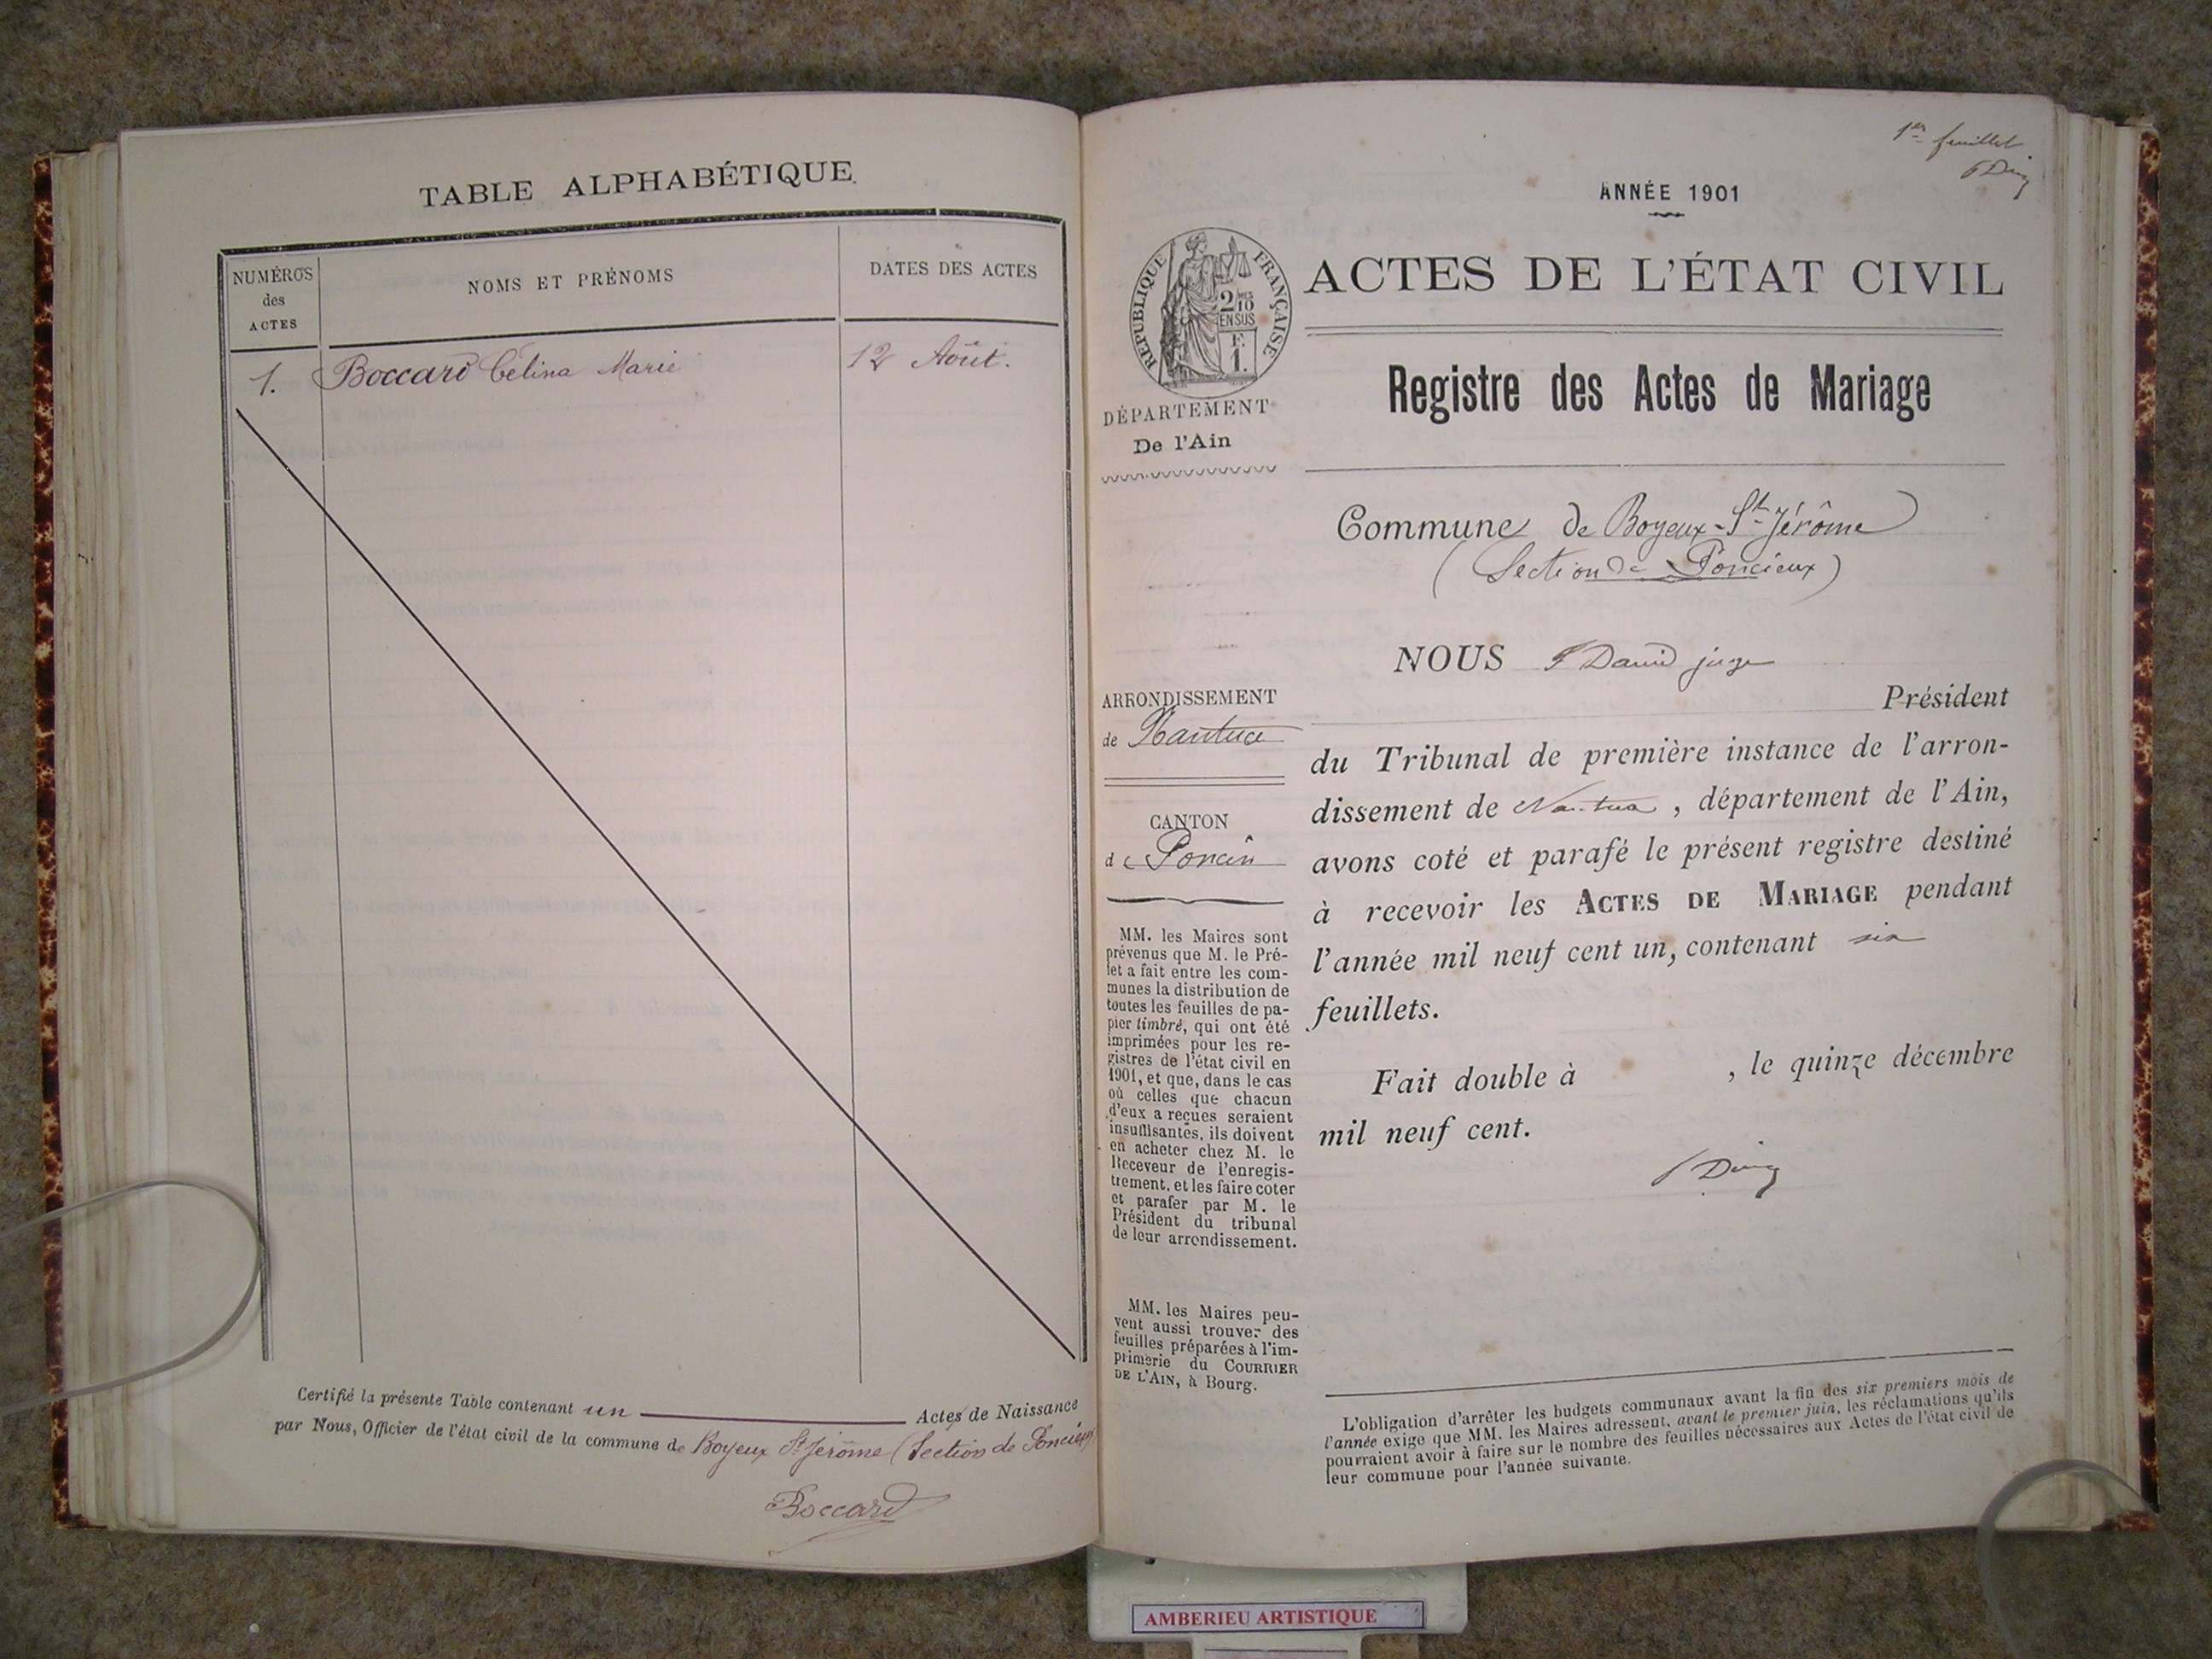 TABLE ALPHABÉTIQUE.
NUMÉROS
des
ACTES
NOMS ET PRÉNOMS
DATES DES ACTES
1. Boccard Célina Marie 12 Août.
Certifié la présente Table contenant un Actes de Naissance
par Nous, Officier de l'état civil de la commune de Boyeux St Jérôme (Section de Poncieux)
Boccard
1er feuillet
ANNÉE 1901
RÉPUBLIQUE FRANÇAISE
2/10
EN SUS
F.
1.
ACTES DE L'ÉTAT CIVIL
DÉPARTEMENT
De l'Ain
Registre des Actes de Mariage
Commune de Boyeux-St-Jérôme
(Section de Poncieux)
NOUS David juge
Président
ARRONDISSEMENT
de Nantua
CANTON
de Poncin
du Tribunal de première instance de l'arron-
dissement de Nantua, département de l'Ain,
avons coté et parafé le présent registre destiné
à recevoir les ACTES DE MARIAGE pendant
l'année mil neuf cent un, contenant six
feuillets.
Fait double à , le quinze décembre
mil neuf cent.
MM. les Maires sont
prévenus que M. le Pré-
fet a fait entre les com-
munes la distribution de
toutes les feuilles de pa-
pier timbré, qui ont été
imprimées pour les re-
gistres de l'état civil en
1901, et que, dans le cas
où celles que chacun
d'eux a reçues seraient
insuffisantes, ils doivent
en acheter chez M. le
Receveur de l'enregis-
trement, et les faire coter
et parafer par M. le
Président du tribunal
de leur arrondissement.
MM. les Maires peu-
vent aussi trouver des
feuilles préparées à l'im-
primerie du COURRIER
DE L'AIN, à Bourg.
L'obligation d'arrêter les budgets communaux avant la fin des six premiers mois de
l'année exige que MM. les Maires adressent, avant le premier juin, les réclamations qu'ils
pourraient avoir à faire sur le nombre des feuilles nécessaires aux Actes de l'état civil de
leur commune pour l'année suivante.
AMBERIEU ARTISTIQUE